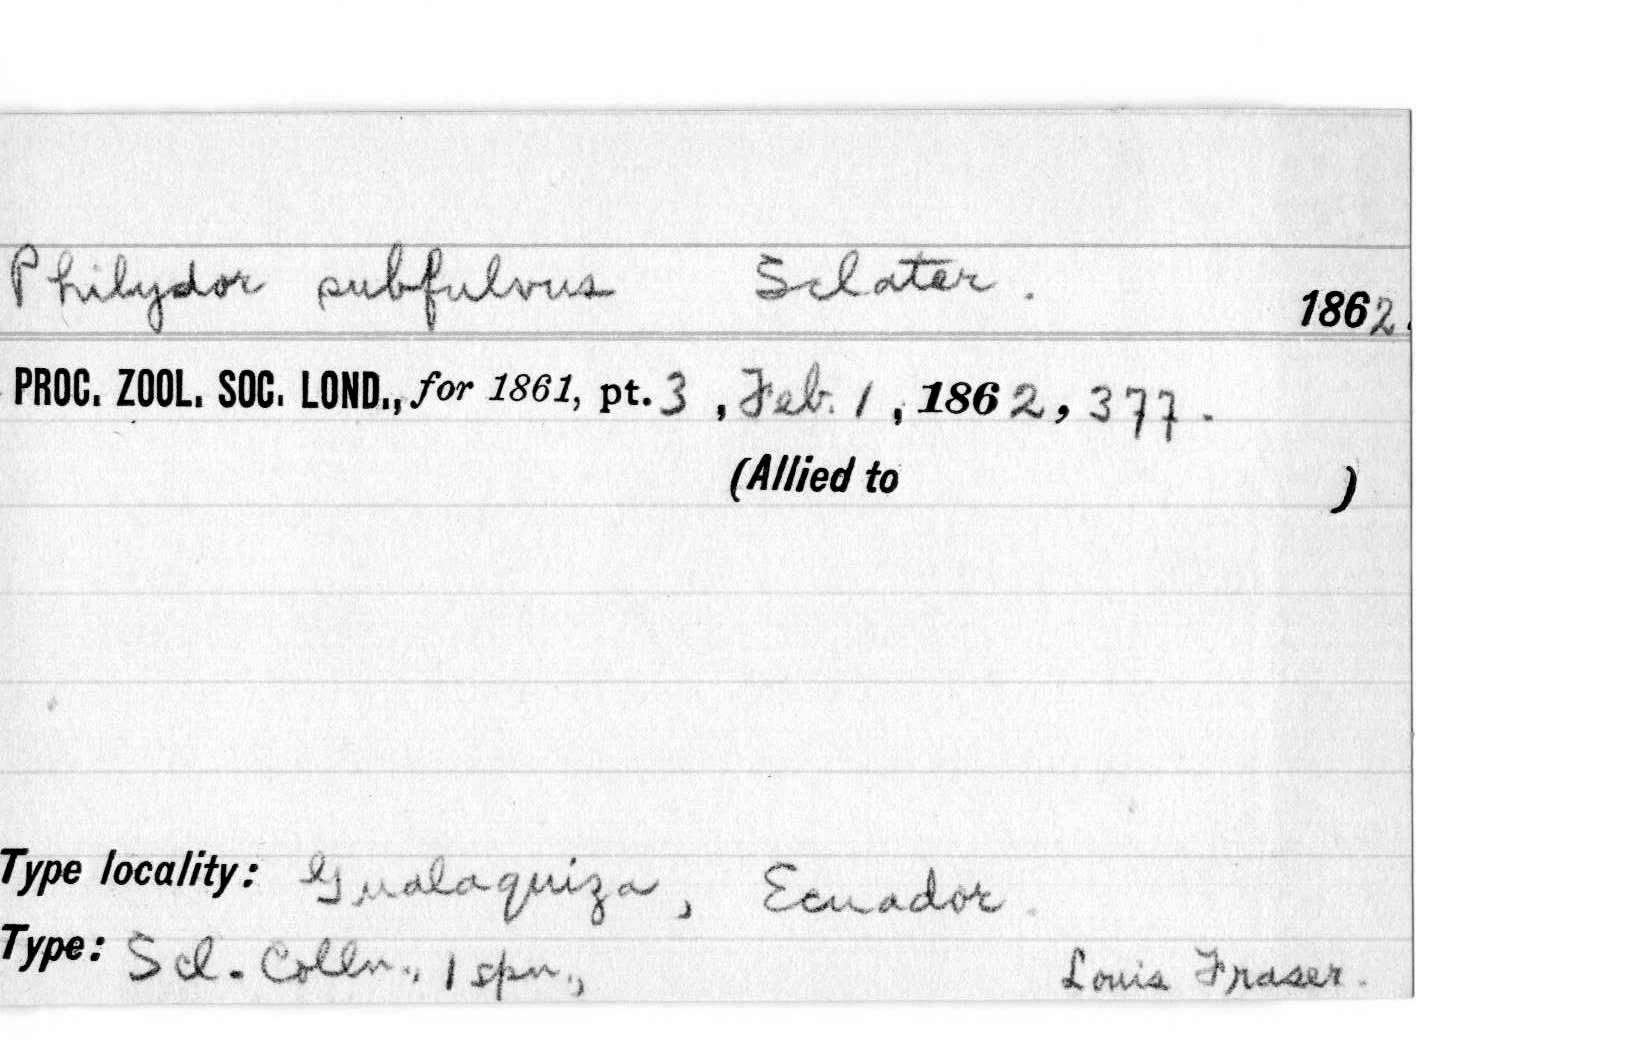 Philydor subfulvus Sclater. 1862.
PROC. ZOOL. SOC. LOND., for 1861, pt. 3, Feb. 1, 1862, 377.
(Allied to )
Type locality: Gualaquiza, Ecuador.
Type: Scl. Colln., 1 spn., Louis Fraser.